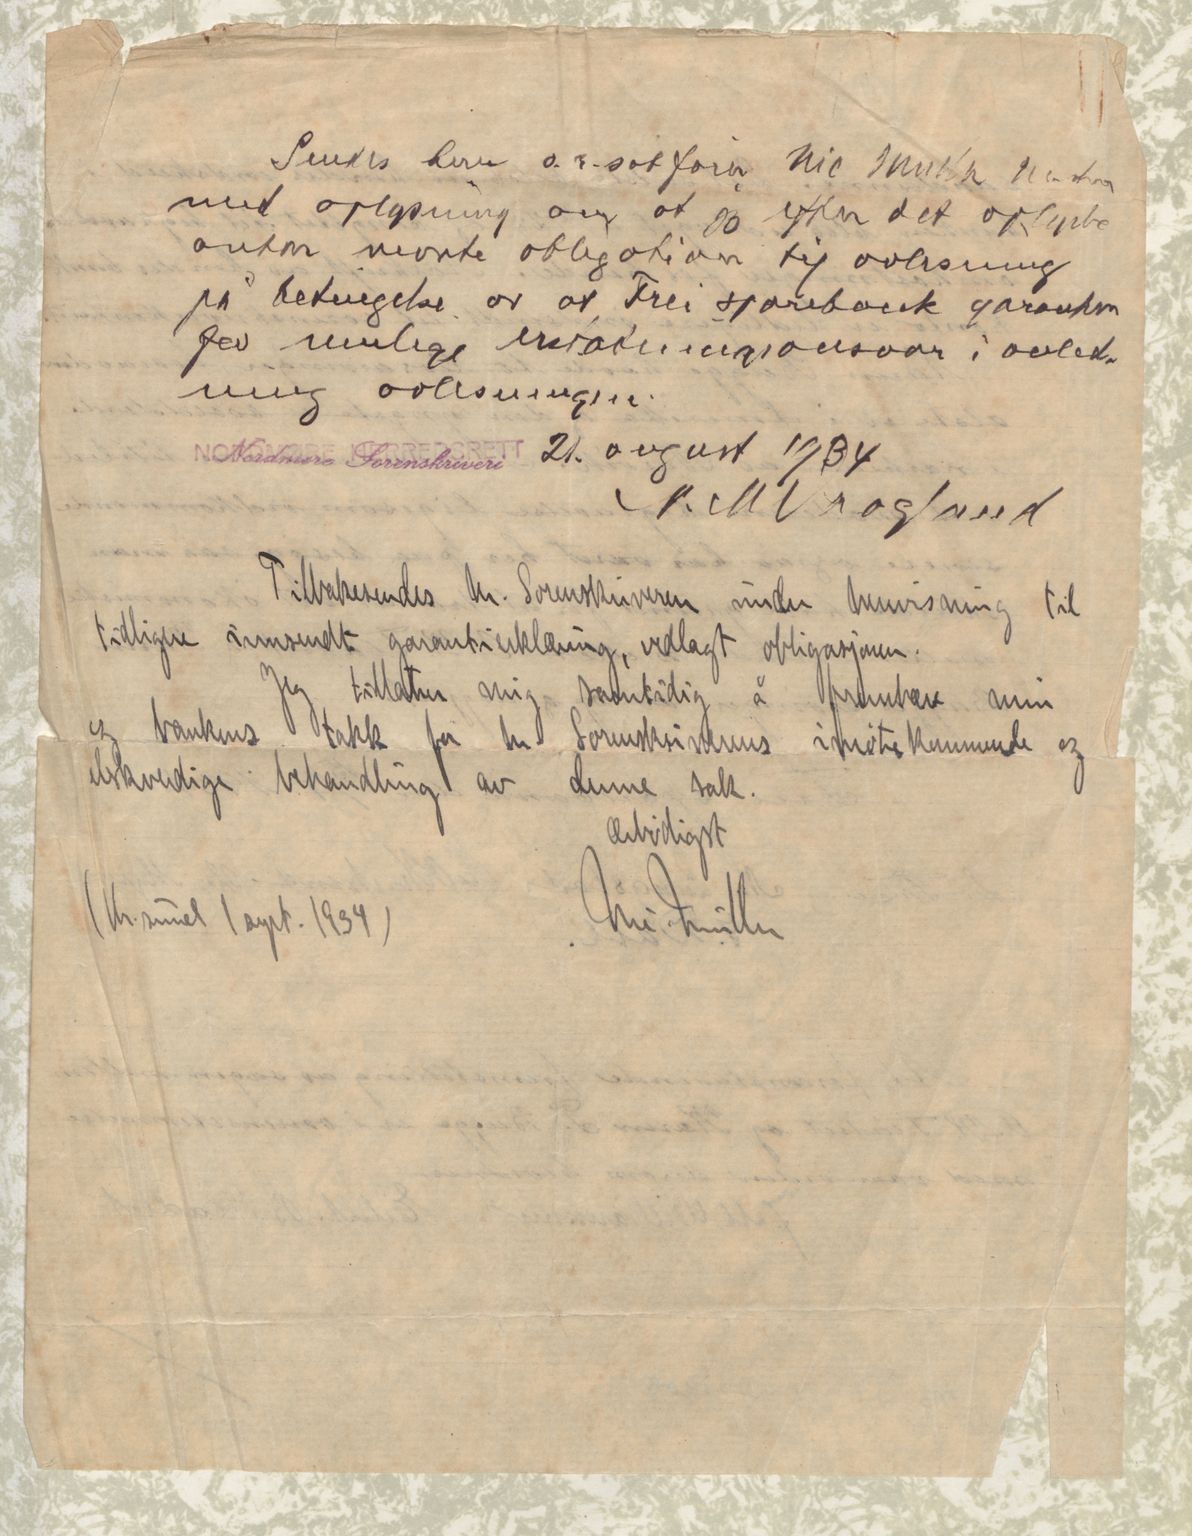 Sendes herr o.r.sakfører Nic Müller
med oplysning om at jeg efter det oplyste
antar nevnte obligation til avlesning
på betingelse av at Frei sparebank garanterer
for mulige erstatningsansvar i anled-
ning avlesningen.
Nordmøre Sorenskriveri 21. august 1934
Tilbakesendes hr. Sorenskriveren under henvisning til
tidligere innsendt garantierklæring, vedlagt obligasjonen.
Jeg tillater mig samtidig å frembære min
og bankens takk for hr. Sorenskriverens imøtekommende og
elskverdige behandling av denne sak.
Ærbødigst
(Kr.sund 1 sept. 1934)
Nic Müller